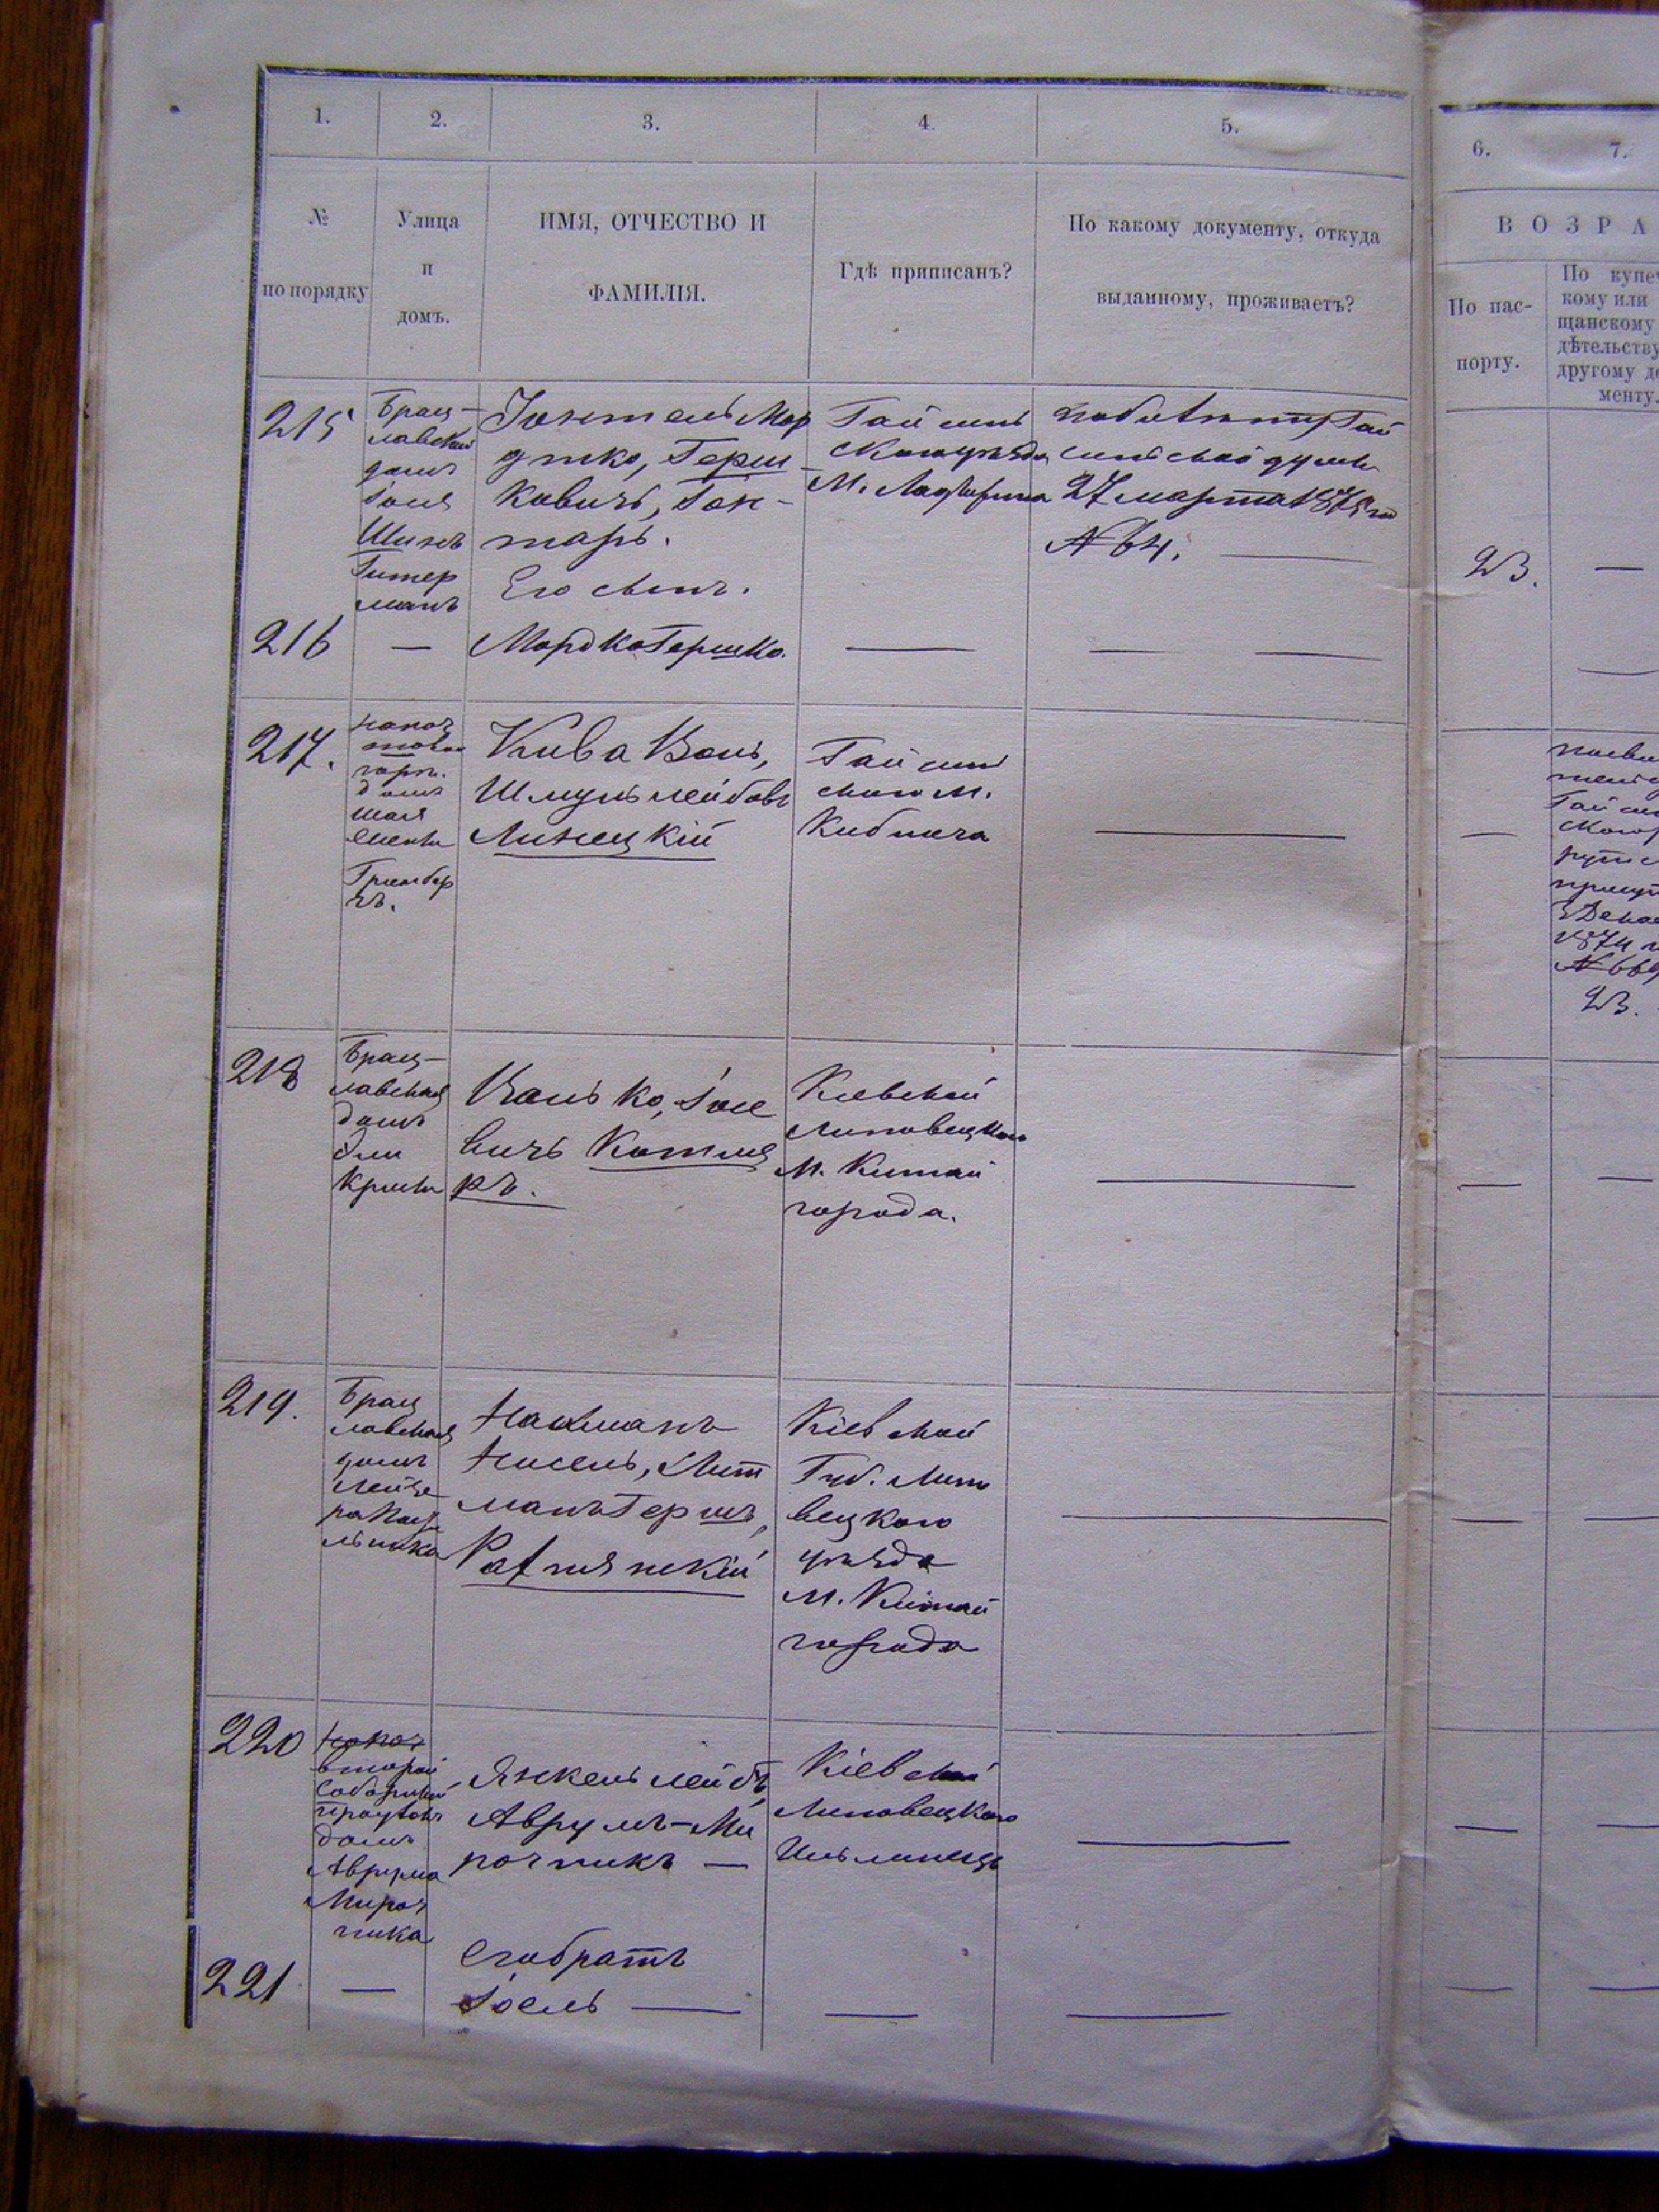 1.
2.
3.
4.
5.
6.
7.
№
по порядку
Улица
и
домъ.
ИМЯ, ОТЧЕСТВО И
ФАМИЛІЯ.
Гдѣ приписанъ?
По какому документу, откуда
выданному, проживаетъ?
ВОЗРА
По пас-
порту.
По купеч
кому или
щанскому
дѣтельству
другому до
менту.
215
Брац-
лавская
домъ
Іоня
Шинъ
Гитер
манъ
Мор
дко, Герш
ковичъ,
тарь.
Гайсин
скаго уѣзда
м. Ладыжина
Гай
синской думы
27 марта 1875 го
№ 64.
23.
Его сынъ.
216
—
Мордко Гершко.
217.
домъ
Гринбер
гъ.
Кива Волъ,
Шмуль Лейбовъ
Линецкій
Гайсин
скаго м.
Кублича
Гайсин
скаго
1874 г
23.
218
Брац-
лавская
домъ
Волько, Іосе
вичъ Котля
ръ.
Кіевской
Липовецкаго
м. Китай
города.
219.
Брац
лавская
домъ
Лейзе
ра
льника
Нахманъ
Нисель, Лит
манъ Гершъ,
Кіевской
Губ. Липо
вецкаго
уѣзда
м. Китай
города
220
второй
Соборный
домъ
Аврума
Мироч
ника
Янкель Лейбъ,
Аврумъ-Ми
рочникъ —
Кіевской
Липовецкаго
Ильинецъ
221
—
Его братъ
Іоель —